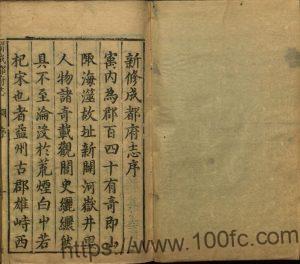 新修成都府志序
寓內為郡百四十有奇即山
陬海澨故址新闢河嶽井里
人物諸奇載觀關史纚纚熊
具不至淪沒於荒煙白屮若
杞宋也者益州古郡雄峙西
https://www.100fc.com